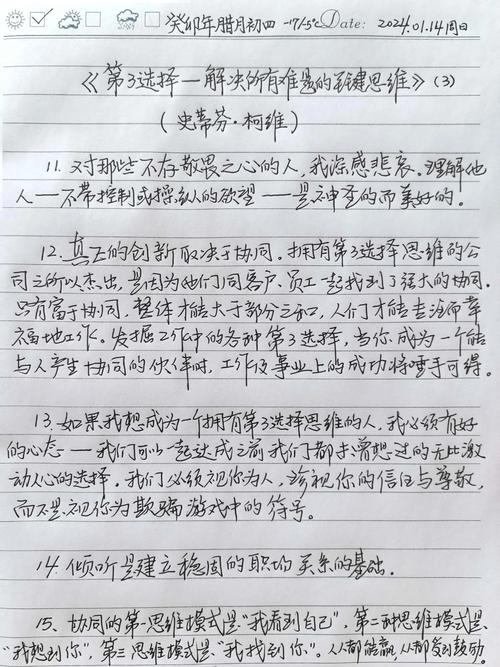 癸卯年腊月初四 -17/-5℃ Date: 2024.01.14周日
《第3选择一解决所有难题的关键思维》(3)
(史蒂芬·柯维)
11. 对那些不存敬畏之心的人,我深感悲哀。理解他
人——不带控制或操纵人的欲望——是神圣的而美好的。
12. 真正的创新取决于协同。拥有第3选择思维的公
司之所以杰出,是因为他们同客户、员工一起找到了强大的协同。
只有富于协同,整体才能大于部分之和,人们才能专注而幸
福地工作。发掘工作中的各种第3选择,当你成为一个能
与人产生协同的伙伴时,工作及事业上的成功将唾手可得。
13. 如果我想成为一个拥有第3选择思维的人,我必须有好
的心态——我们可以一起达成之前我们都未曾想过的无比激
动人心的选择。我们必须视你为人,珍视你的信任与尊敬,
而不是视你为欺骗游戏中的符号。
14. 倾听是建立稳固的职场关系的基础.
15、协同的第一思维模式是“我看到自己”,第二种思维模式是
“我想到你”,第三思维模式是“我找到你”。